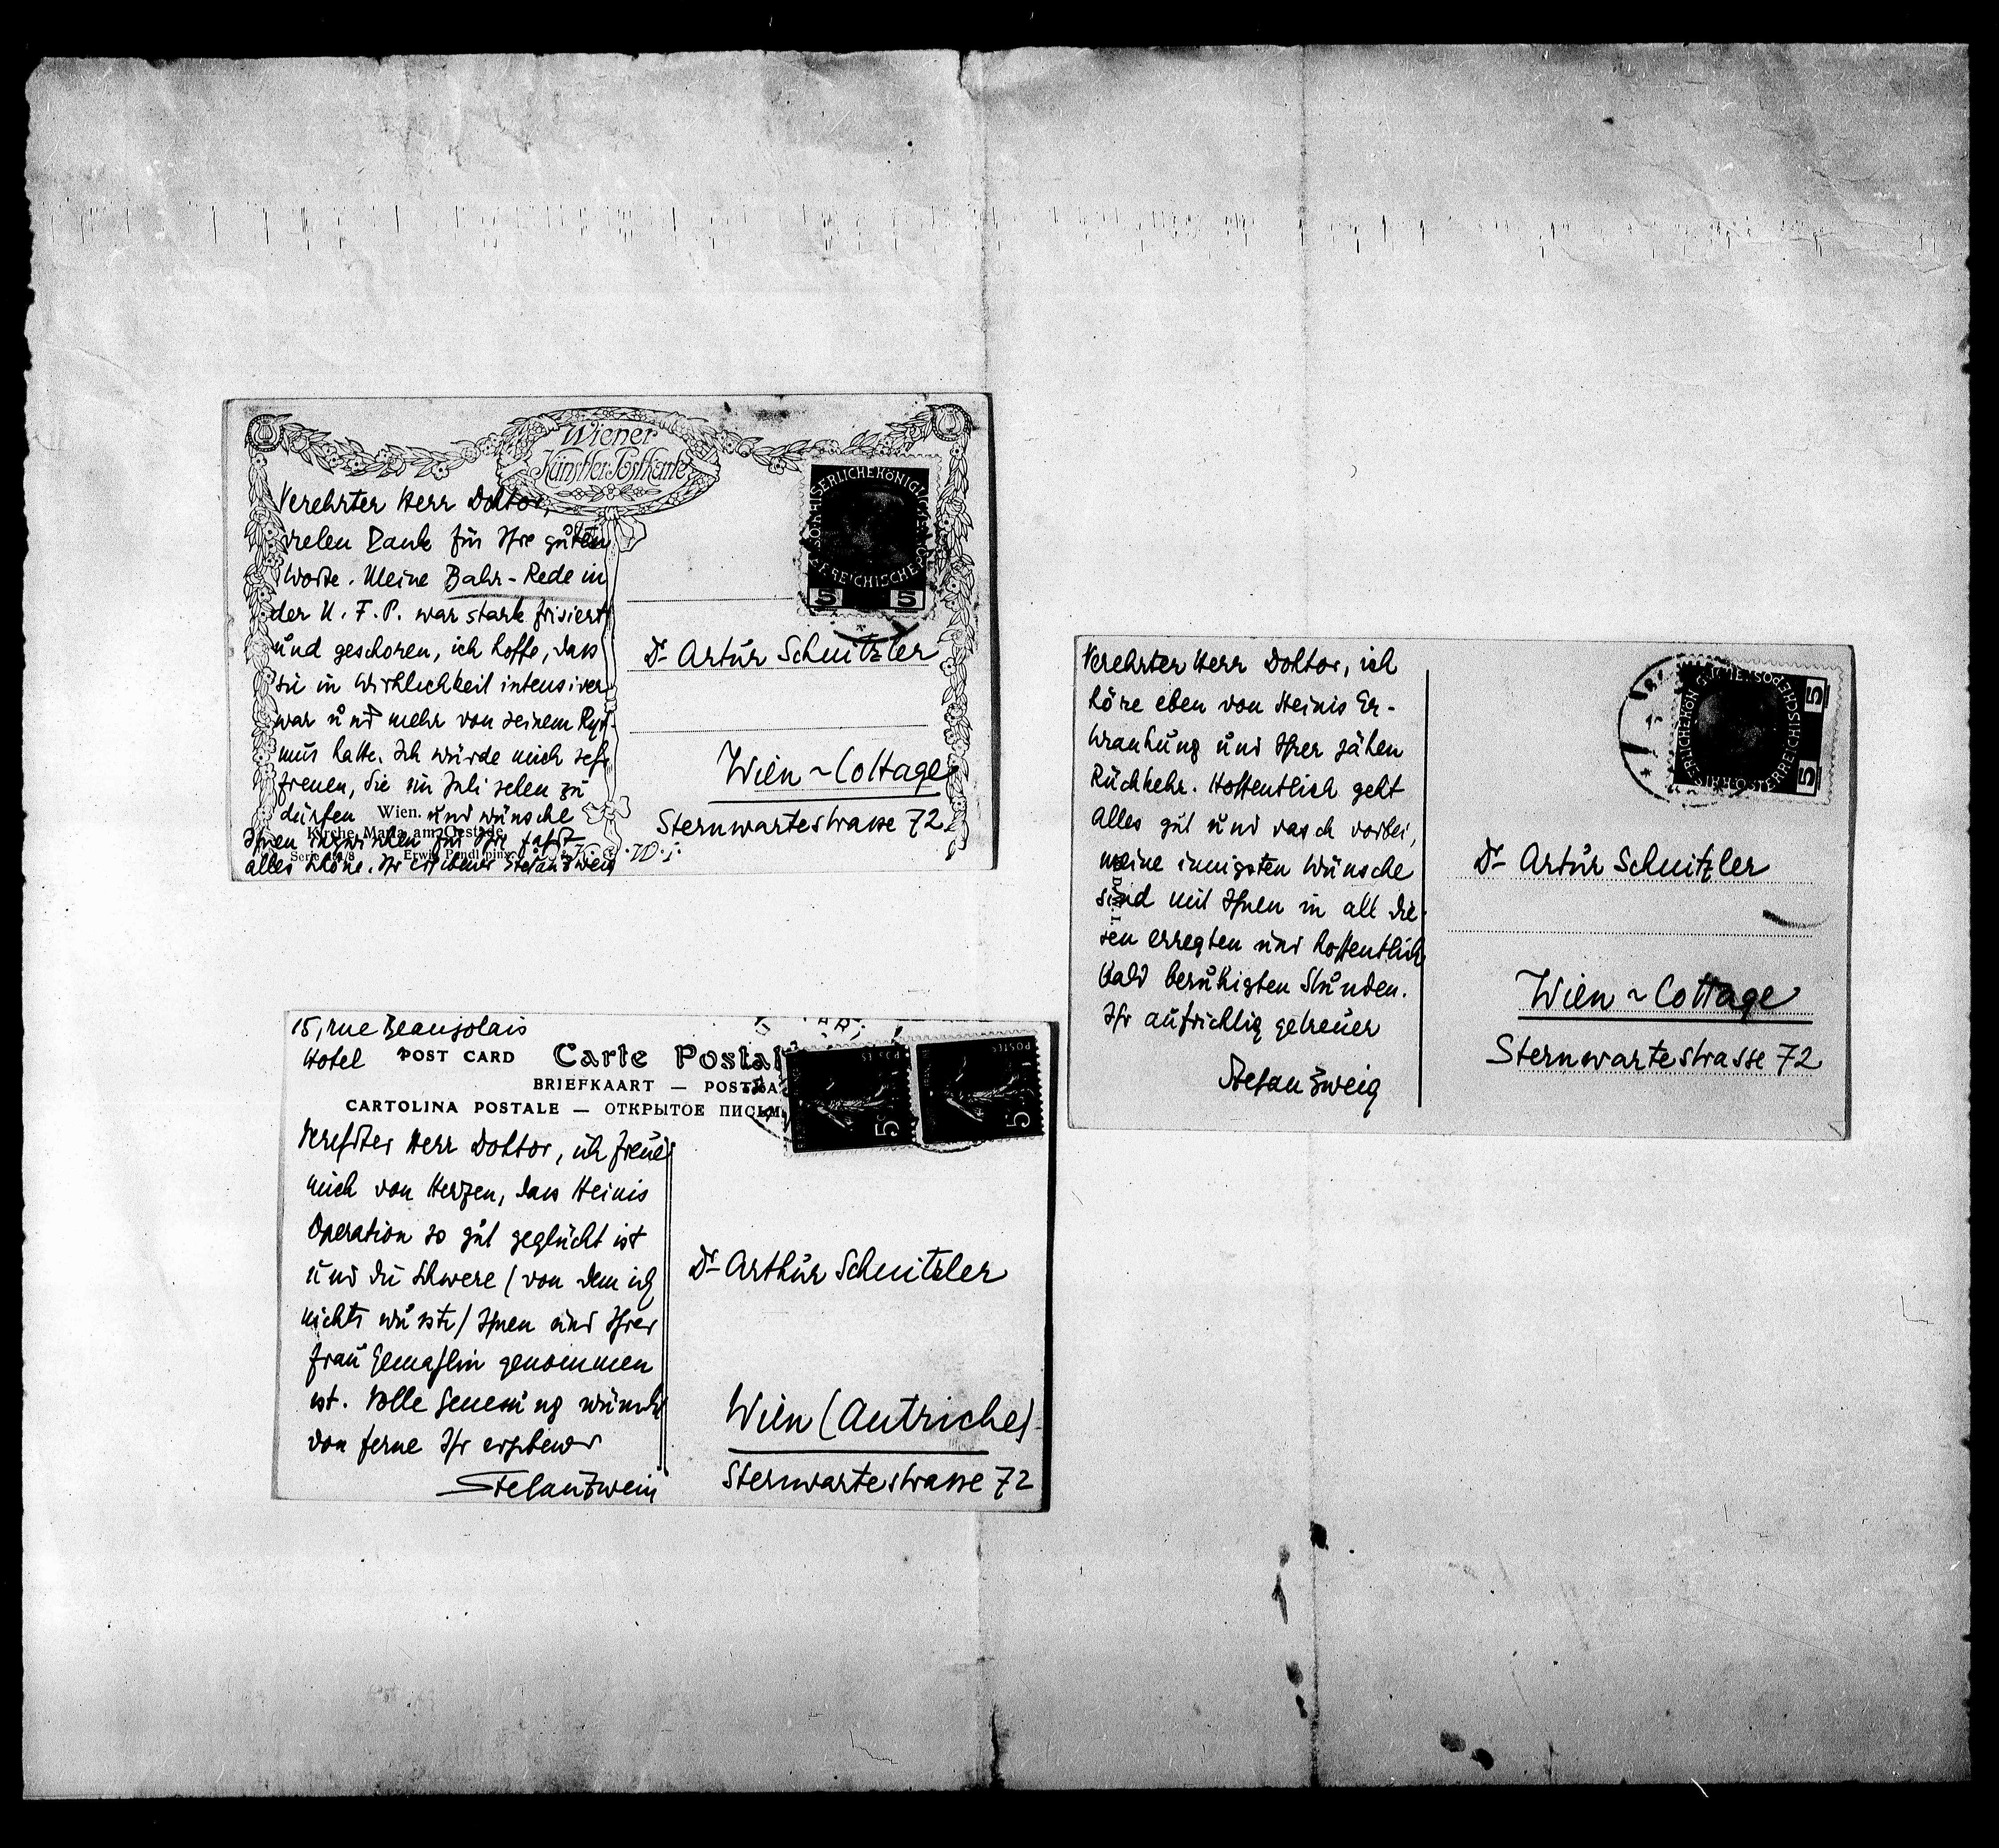 Wiener
Künstler-Postkarte
Verehrter Herr Doktor,
vielen Dank für Ihre guten
Worte. Meine Bahr-Rede in
der N. F. P. war stark frisiert
und geschoren, ich hoffe, dass
sie in Wirklichkeit intensiver
war und mehr von seinem Ryt-
mus hatte. Ich würde mich sehr
freuen, Sie im Juli sehen zu
dürfen und wünsche
Ihnen inzwischen für Ihre Fahrt
alles Schöne. Ihr ergebener Stefan Zweig
Wien.
Kirche Maria am Gestade.
Erwin Pendl pinx.
5 5
Dr Artur Schnitzler
Wien ~ Cottage
Sternwartestrasse 72
Verehrter Herr Doktor, ich
höre eben von Heinis Er-
krankung und Ihrer jähen
Rückkehr. Hoffentlich geht
alles gut und rasch vorbei,
meine innigsten Wünsche
sind mit Ihnen in all die-
sen erregten und hoffentlich
bald beruhigten Stunden.
Ihr aufrichtig getreuer
Stefan Zweig
5 5
Dr Artur Schnitzler
Wien ~ Cottage
Sternwartestrasse 72
15, rue Beaujolais
Hotel
POST CARD Carte Postal
BRIEFKAART — POSTKA
CARTOLINA POSTALE — ОТКРЫТОЕ ПИСЬМ
Verehrter Herr Doktor, ich freue
mich von Herzen, dass Heinis
Operation so gut geglückt ist
und die Schwere (von dem ich
nichts wusste) Ihnen und Ihrer
Frau Gemahlin genommen
ist. Volle Genesung wünscht
von ferne Ihr ergebener
Stefan Zweig
POSTES
5
POSTES
5
Dr Arthur Schnitzler
Wien (Autriche)
Sternwartestrasse 72